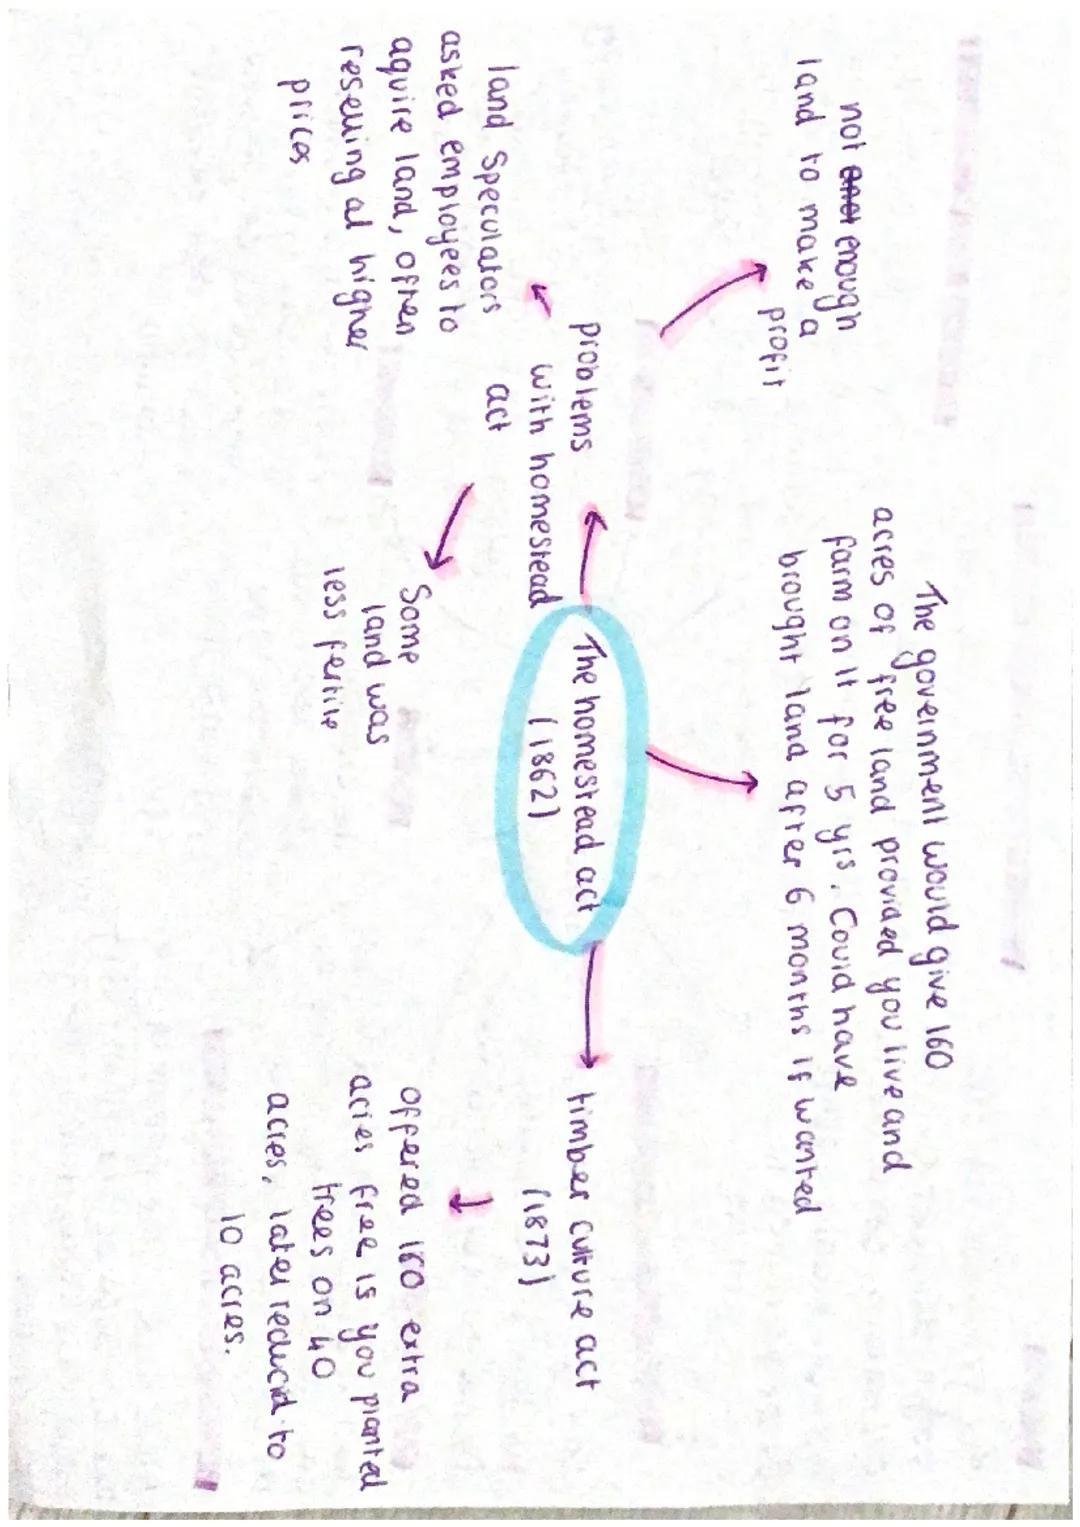 The government would give 160
acres of free land provided you live and
farm on it for 5 yrs. Could have
brought land after 6 months if wanted
not enough
land to make a
profit
problems
with homestead
act
land speculators
asked employees to
aquire land, often
reselling at higher
prices
Some
land was
less fertile
The homestead act
(1862)
timber culture act
(1873)
offered 160 extra
acres free is you planted
trees on 40
acres, later reducid to
10 acres.